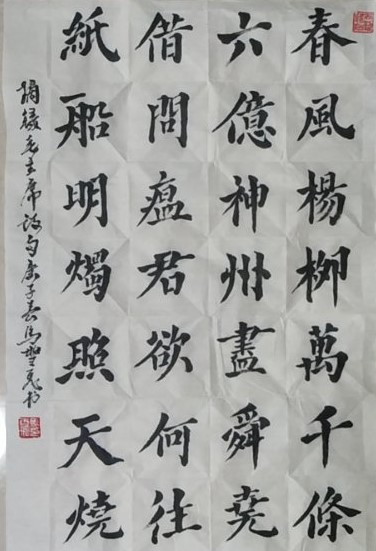 春風楊柳萬千條
六億神州盡舜堯
借問瘟君欲何往
紙船明燭照天燒
毛主席詩句庚子春馬